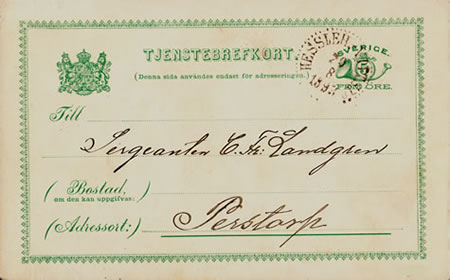 TJENSTEBREFKORT.
(Denna sida användes endast för adresseringen.)
SVERIGE.
5
FEM ÖRE.
HESSLEH
Till
Sergeanten C. Fr: Landgren
(Bostad,
om den kan uppgifvas:)
(Adressort:)
Perstorp